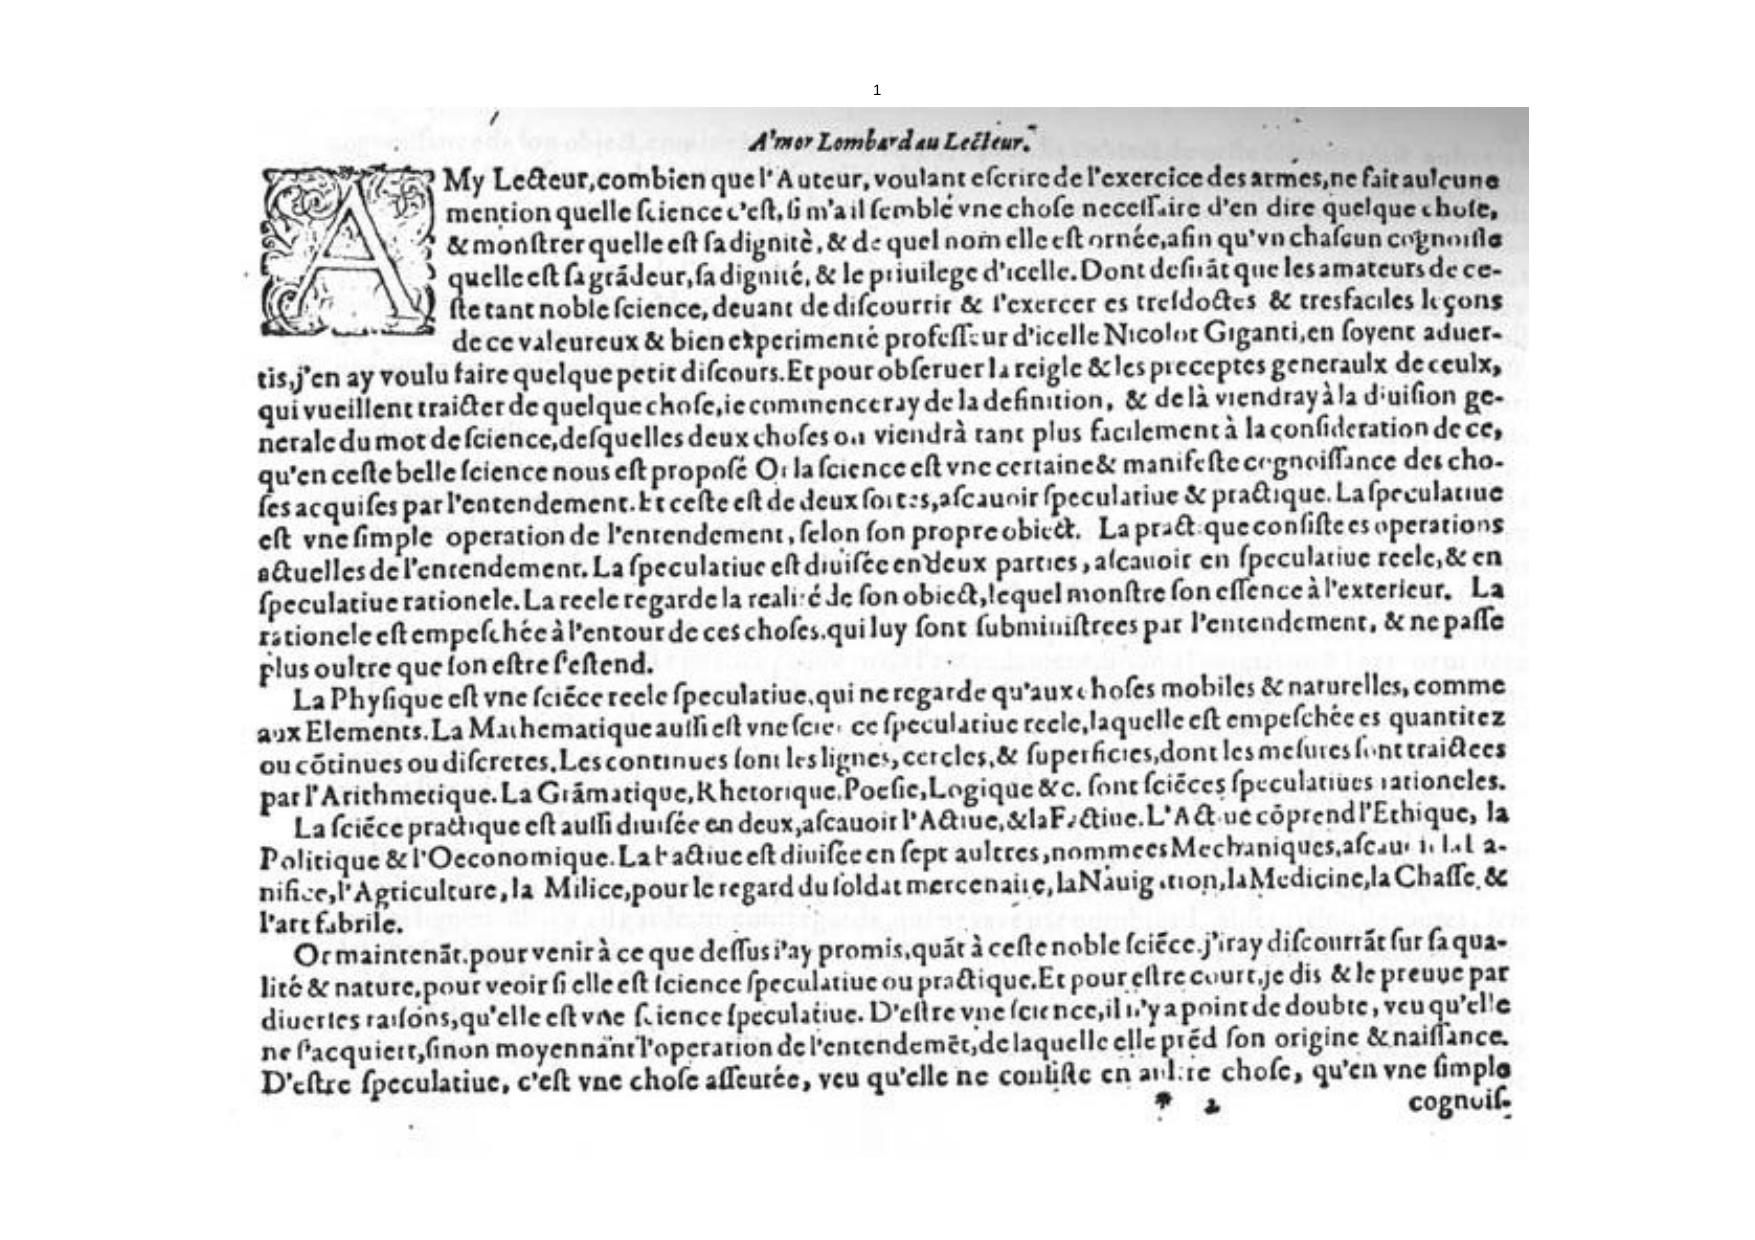 1
A'mor Lombard au Lecteur.
AMy Lecteur, combien que l'Auteur, voulant eſcrire de l'exercice des armes, ne fait aulcune
mention quelle ſcience c'eſt, ſi m'a il ſemblé vne choſe neceſſaire d'en dire quelque choſe,
& monſtrer quelle eſt ſa dignitè, & de quel nom elle eſt ornée, afin qu'vn chaſcun cognoiſſe
quelle eſt ſa grãdeur, ſa dignité, & le priuilege d'icelle. Dont deſirãt que les amateurs de ce-
ſte tant noble ſcience, deuant de diſcourrir & l'exercer es treſdoctes & tresfaciles leçons
de ce valeureux & bien experimenté profeſſeur d'icelle Nicolot Giganti, en ſoyent aduer-
tis, j'en ay voulu faire quelque petit diſcours. Et pour obſeruer la reigle & les preceptes generaulx de ceulx,
qui vueillent traicter de quelque choſe, ie commenceray de la definition, & de là viendray à la diuiſion ge-
nerale du mot de ſcience, deſquelles deux choſes on viendrà tant plus facilement à la conſideration de ce,
qu'en ceſte belle ſcience nous eſt propoſé Or la ſcience eſt vne certaine & manifeſte cognoiſſance des cho-
ſes acquiſes par l'entendement. Et ceſte eſt de deux ſortes, aſcauoir ſpeculatiue & practique. La ſpeculatiue
eſt vne ſimple operation de l'entendement, ſelon ſon propre obiect. La practique conſiſte es operations
actuelles de l'entendement. La ſpeculatiue eſt diuiſée en deux parties, aſcauoir en ſpeculatiue reele, & en
ſpeculatiue rationele. La reele regarde la realité de ſon obiect, lequel monſtre ſon eſſence à l'exterieur. La
rationele eſt empeſchée à l'entour de ces choſes, qui luy ſont ſubminiſtrees par l'entendement, & ne paſſe
plus oultre que ſon eſtre ſ'eſtend.
La Phyſique eſt vne ſciẽce reele ſpeculatiue, qui ne regarde qu'aux choſes mobiles & naturelles, comme
aux Elements. La Mathematique auſſi eſt vne ſcience ſpeculatiue reele, laquelle eſt empeſchée es quantitez
ou cõtinues ou diſcretes. Les continues ſont les lignes, cercles, & ſuperficies, dont les meſures ſont traictees
par l'Arithmetique. La Grãmatique, Rhetorique, Poeſie, Logique &c. ſont ſciẽces ſpeculatiues rationeles.
La ſciẽce practique eſt auſſi diuiſée en deux, aſcauoir l'Actiue, & la Factiue. L'Actiue cõprend l'Ethique, la
Politique & l'Oeconomique. La Factiue eſt diuiſée en ſept aultres, nommees Mechaniques, aſcauoir la La-
nifice, l'Agriculture, la Milice, pour le regard du ſoldat mercenaire, la Nauigation, la Medicine, la Chaſſe, &
l'art fabrile.
Or maintenãt, pour venir à ce que deſſus i'ay promis, quãt à ceſte noble ſciẽce, j'iray diſcourrãt ſur ſa qua-
lité & nature, pour veoir ſi elle eſt ſcience ſpeculatiue ou practique. Et pour eſtre court, je dis & le preuue par
diuerſes raiſons, qu'elle eſt vne ſcience ſpeculatiue. D'eſtre vne ſcience, il n'y a point de doubte, veu qu'elle
ne ſ'acquiert, ſinon moyennant l'operation de l'entendemẽt, de laquelle elle prẽd ſon origine & naiſſance.
D'eſtre ſpeculatiue, c'eſt vne choſe aſſeurée, veu qu'elle ne conſiſte en aultre choſe, qu'en vne ſimple
* 2 cognoiſ-